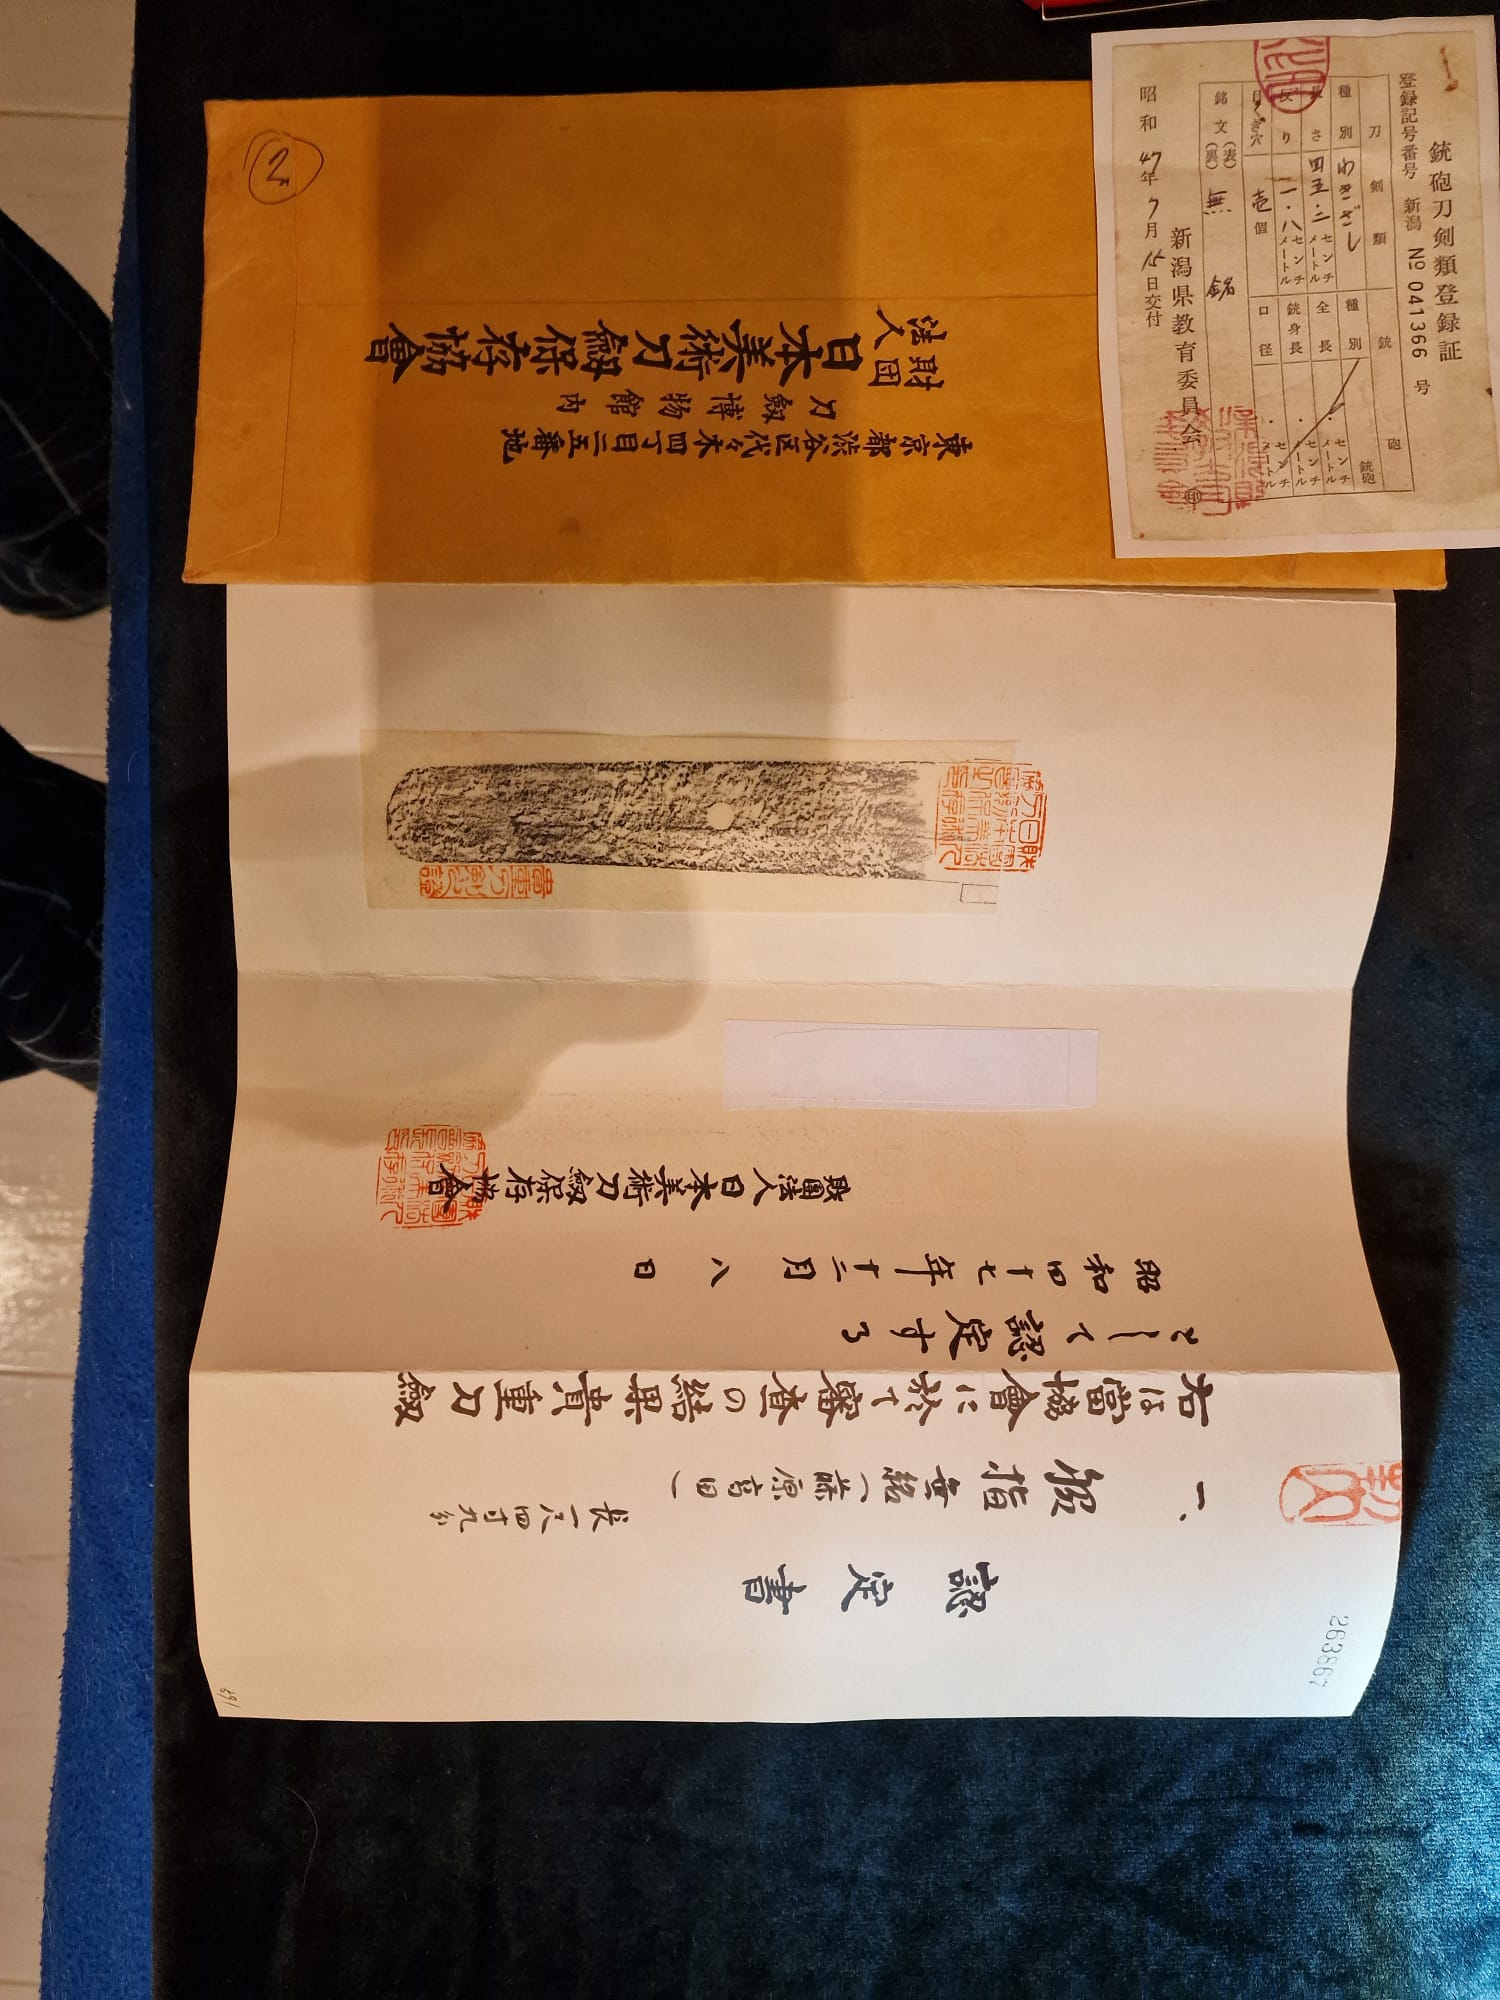 銃砲刀剣類登録証
登録記号番号 新潟 № 041366 号
刀剣類
銃砲
種別 わきざし
種別
銃砲
長さ 四五・二 センチメートル
全長 ・ センチメートル
反り 一・八 センチメートル
銃身長 ・ センチメートル
目くぎ穴 壱個
口径 ・ センチメートル
銘文 (表) (裏) 無銘
新潟県教育委員会 印
昭和47年7月15日交付
2
東京都渋谷区代々木四丁目二五番地
刀劔博物館内
財団法人 日本美術刀劔保存協會
263867
認定書
一、脇指 無銘(藤原高田)
長一尺四寸九分
右は當協會に於て審査の結果貴重刀劔
として認定する
昭和四十七年十二月八日
財團法人日本美術刀劔保存協會